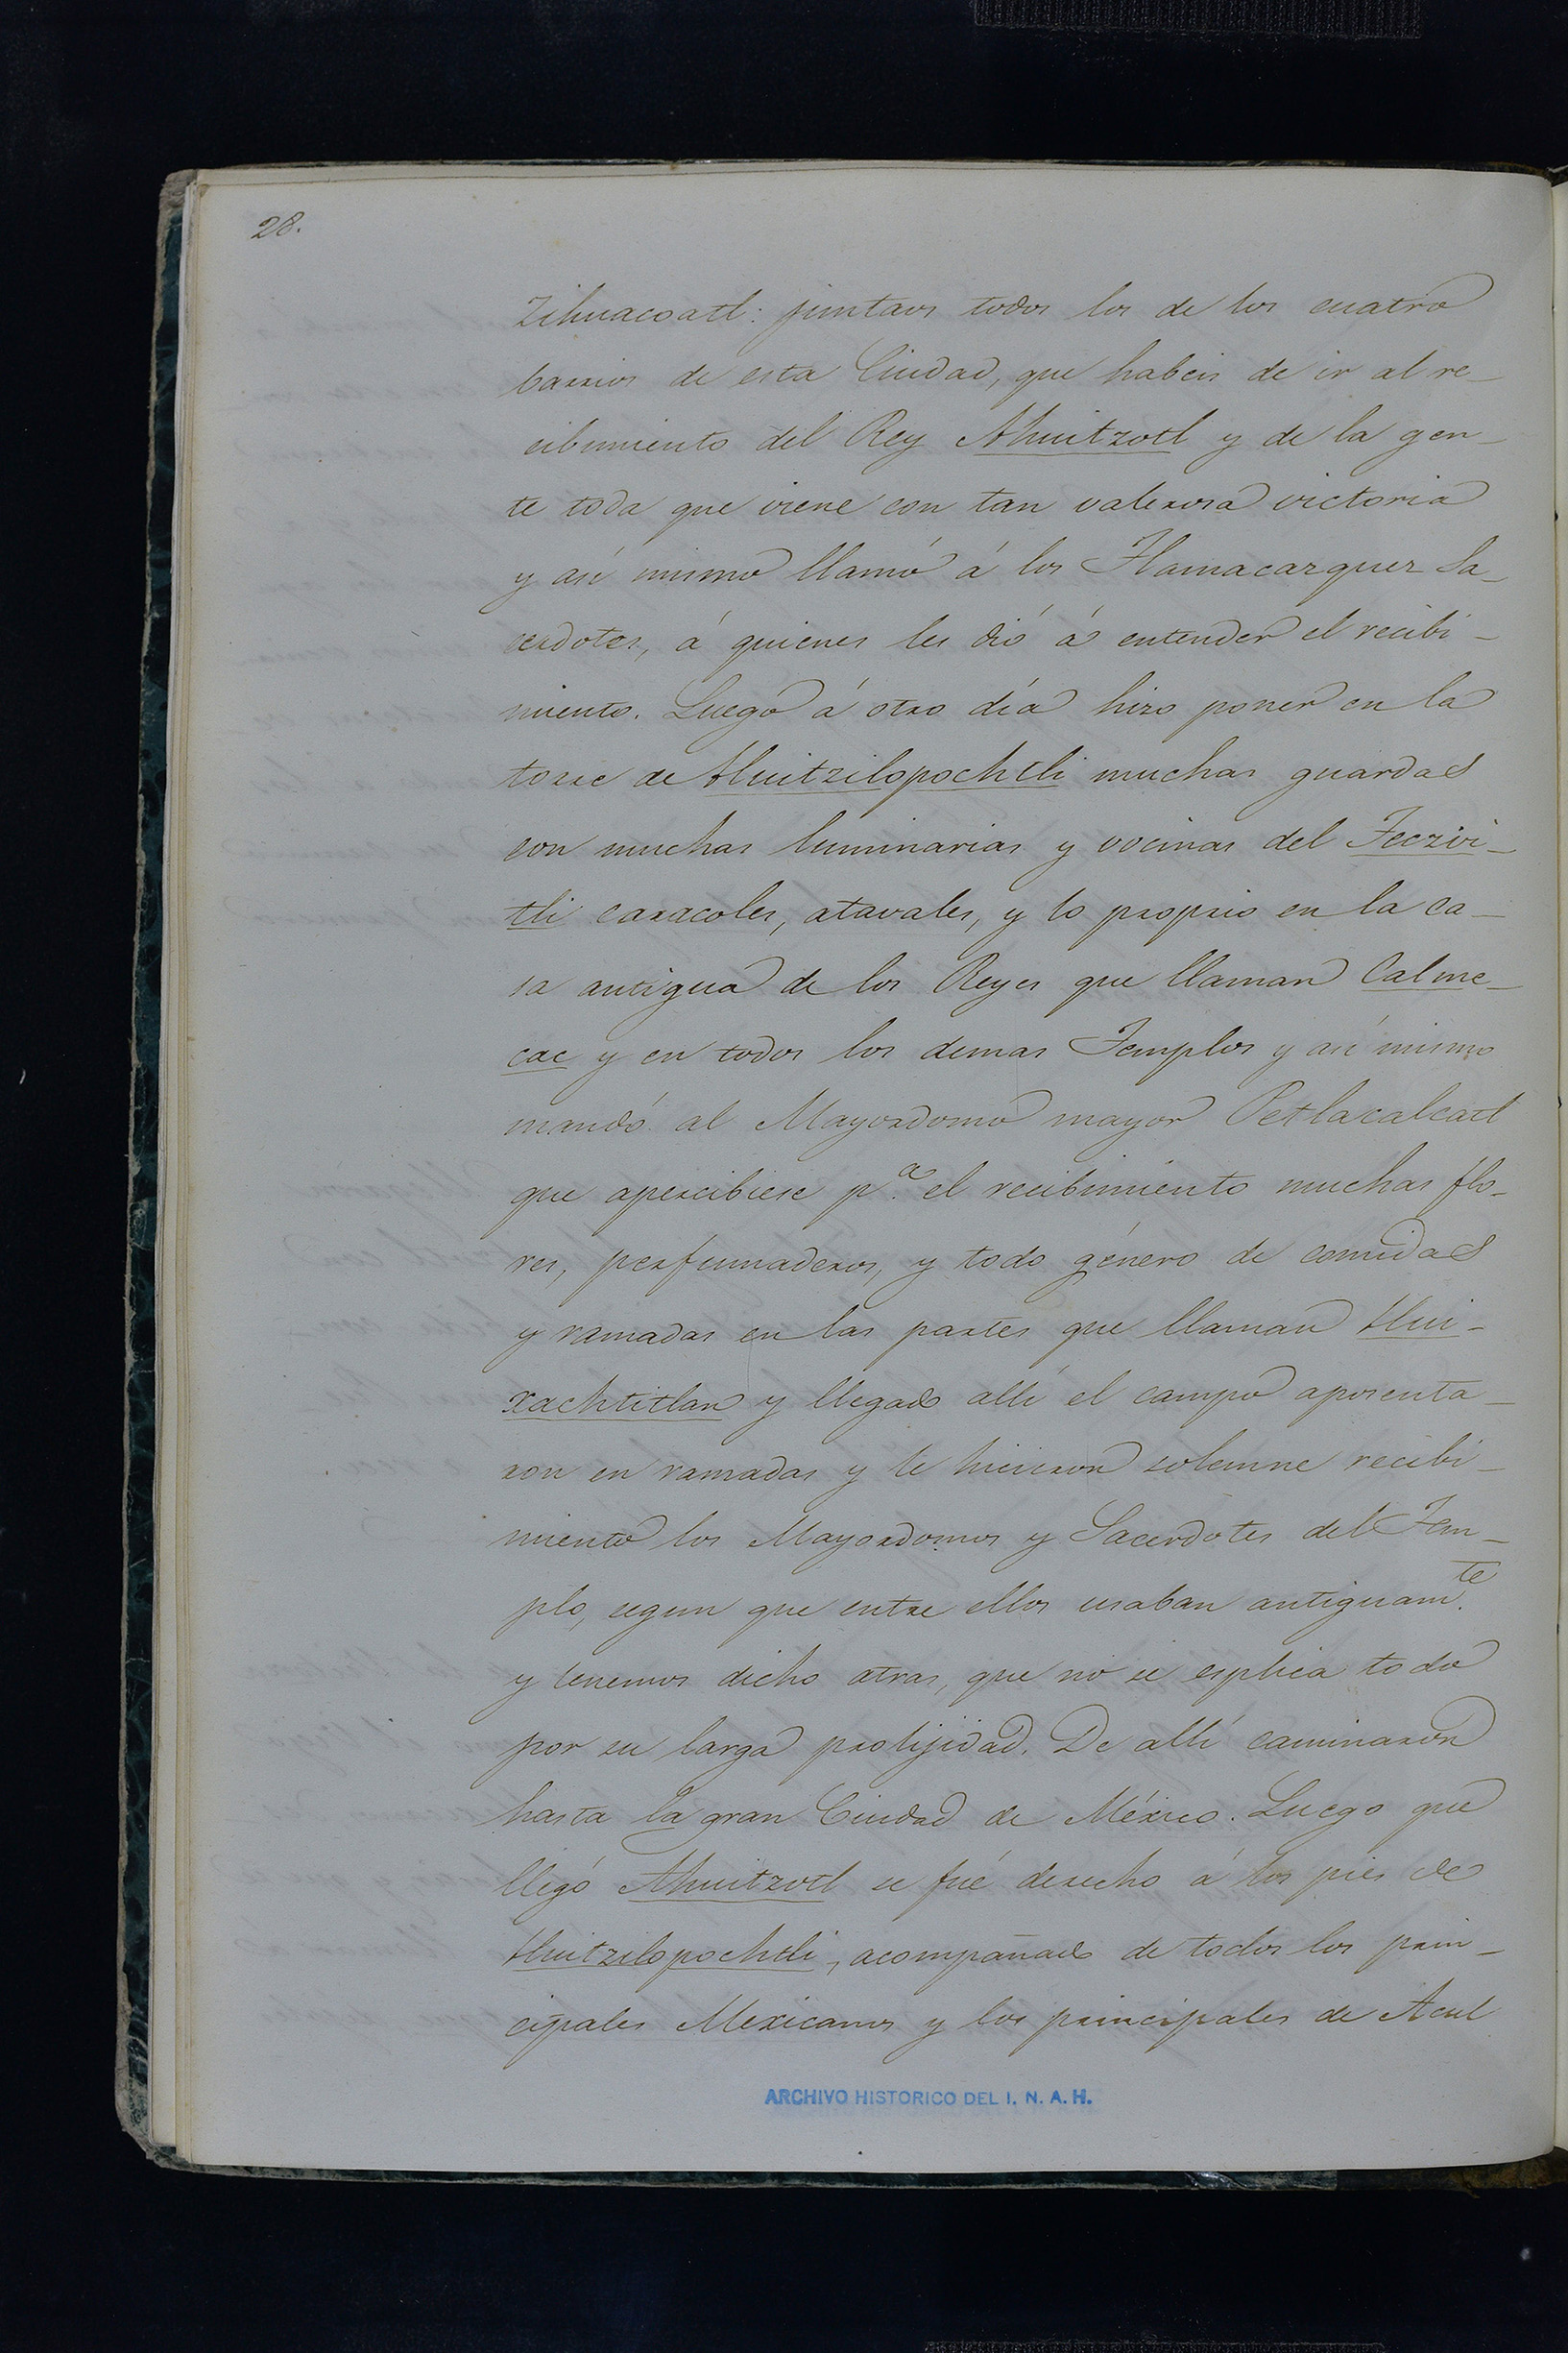 28.
Zihuacoatl: juntaos todos los de los cuatro
barrios de esta Ciudad, que habeis de ir al re-
cibimiento del Rey Ahuitzotl y de la gen-
te toda que viene con tan valerosa victoria
y así mismo llamó á los Tlamacazquez Sa-
cerdotes, á quienes les dió á entender el recibi-
miento. Luego á otro día hizo poner en la
torre de Huitzilopochtli muchas guardas
con muchas luminarias y vocinas del Teczivi-
tli caracoles, atavales, y lo proprio en la ca-
sa antigua de los Reyes que llaman Calme-
cac y en todos los demas Templos y así mismo
mandó al Mayordomo mayor Petlacalcatl
que apercibiese p.ª el recibimiento muchas flo-
res, perfumaderos, y todo género de comidas
y ramadas en las partes que llaman Hui-
xachtitlan y llegado allí el campo aposenta-
ron en ramadas y le hicieron solemne recibi-
miento los Mayordomos y Sacerdotes del Tem-
plo, segun que entre ellos usaban antiguam.te
y tenemos dicho atras, que no se esplica todo
por su larga prolijidad. De allí caminaron
hasta la gran Ciudad de México. Luego que
llegó Ahuitzotl se fué derecho á los pies de
Huitzilopochtli, acompañado de todos los prin-
cipales Mexicanos y los principales de Acul
ARCHIVO HISTORICO DEL I. N. A. H.